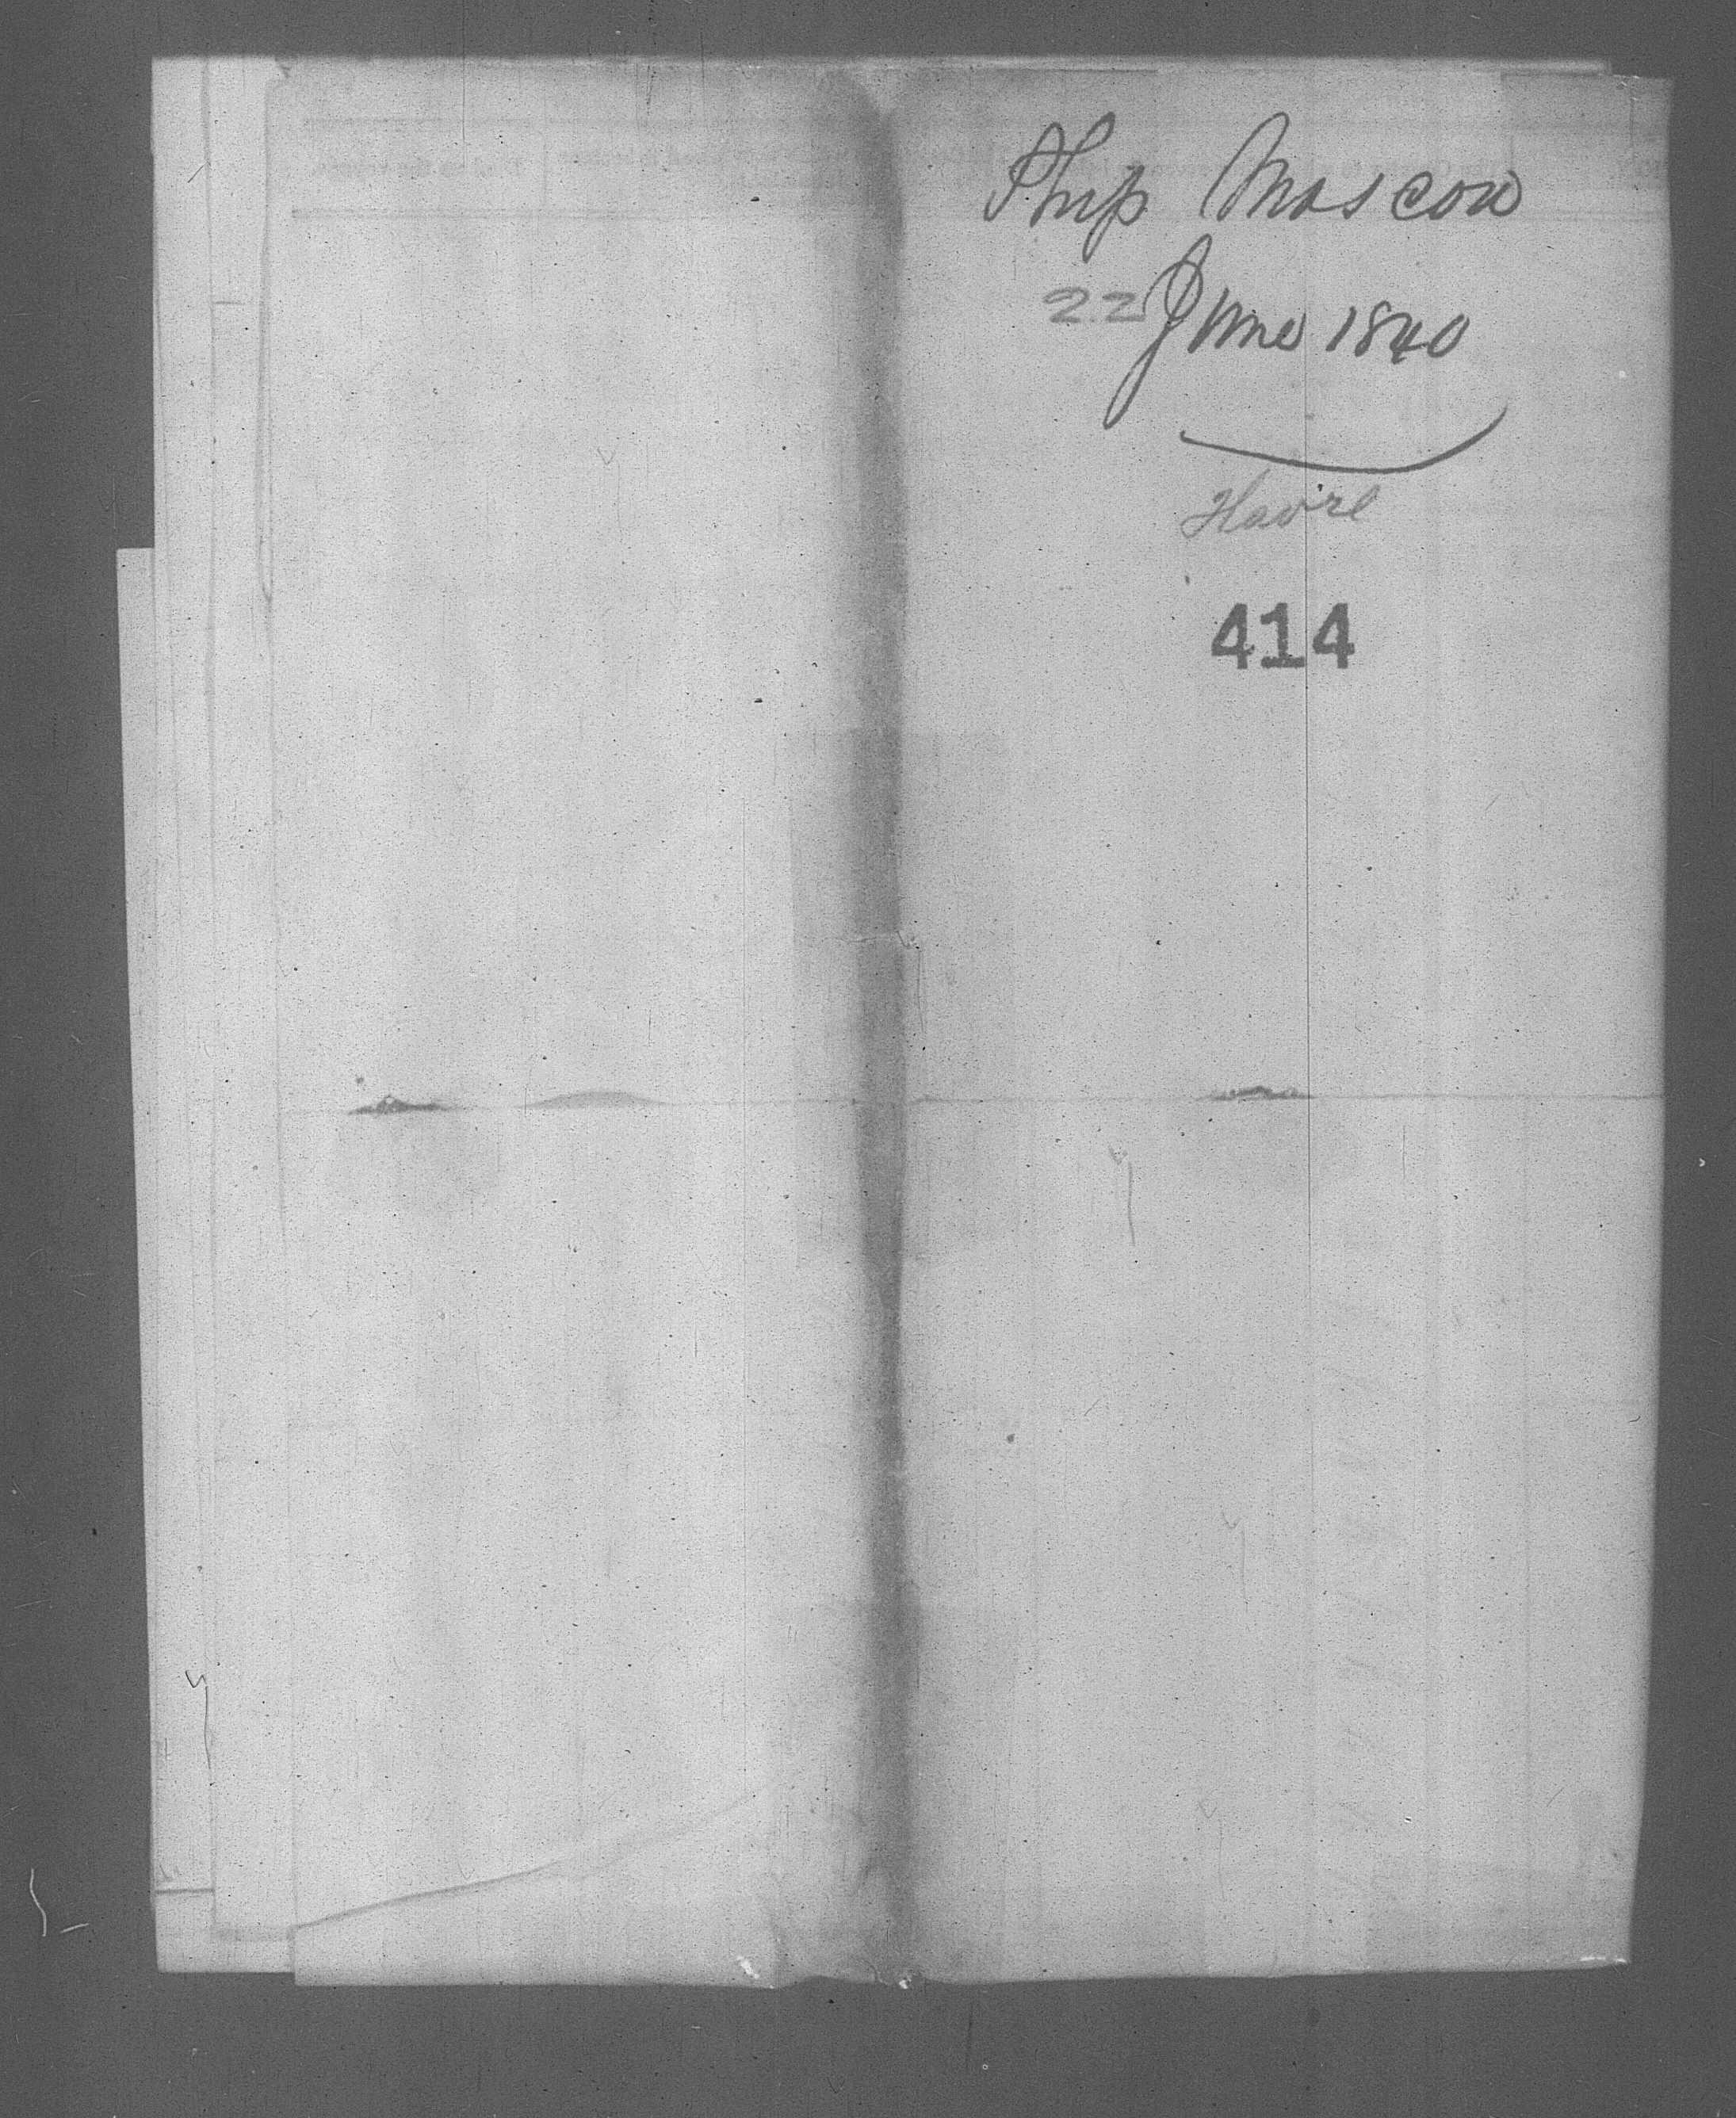 Ship Moscow
22 June 1840
Havre
414